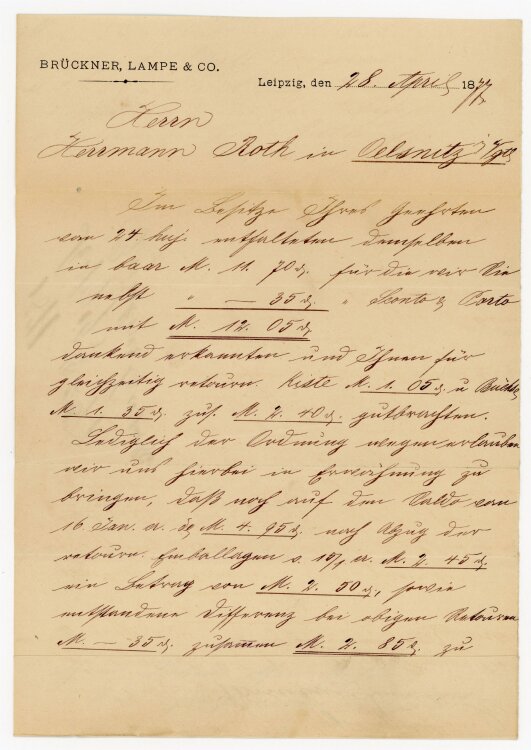 BRÜCKNER, LAMPE & CO.
Leipzig, den 28. April 1877
Herrn
Herrmann Roth in Oelsnitz i/Vgtl
Im Besitze Ihres Geehrten
vom 24. huj. enthalteten demselben
in baar M. 11. 70 d. für die wir Sie
nebst " — 35 d. " Sconto & Porto
mit M. 12. 05 d.
dankend erkannten und Ihnen für
gleichzeitig retourn. Kiste M. 1. 05 d. u
M. 1. 35 d. zus. M. 2. 40 d. gutbrachten.
Lediglich der Ordnung wegen, erlauben
wir uns hierbei in Erwähnung zu
bringen, daß noch auf den Saldo vom
16. Jan. a. c. M. 4. 95 d. nach Abzug der
retourn. Emballagen v. M. 2. 45 d.
ein Betrag von M. 2. 50 d., sowie
entstandene Differenz bei obigen Retouren
M. — 35 d. zusammen M. 2. 85 d. zu